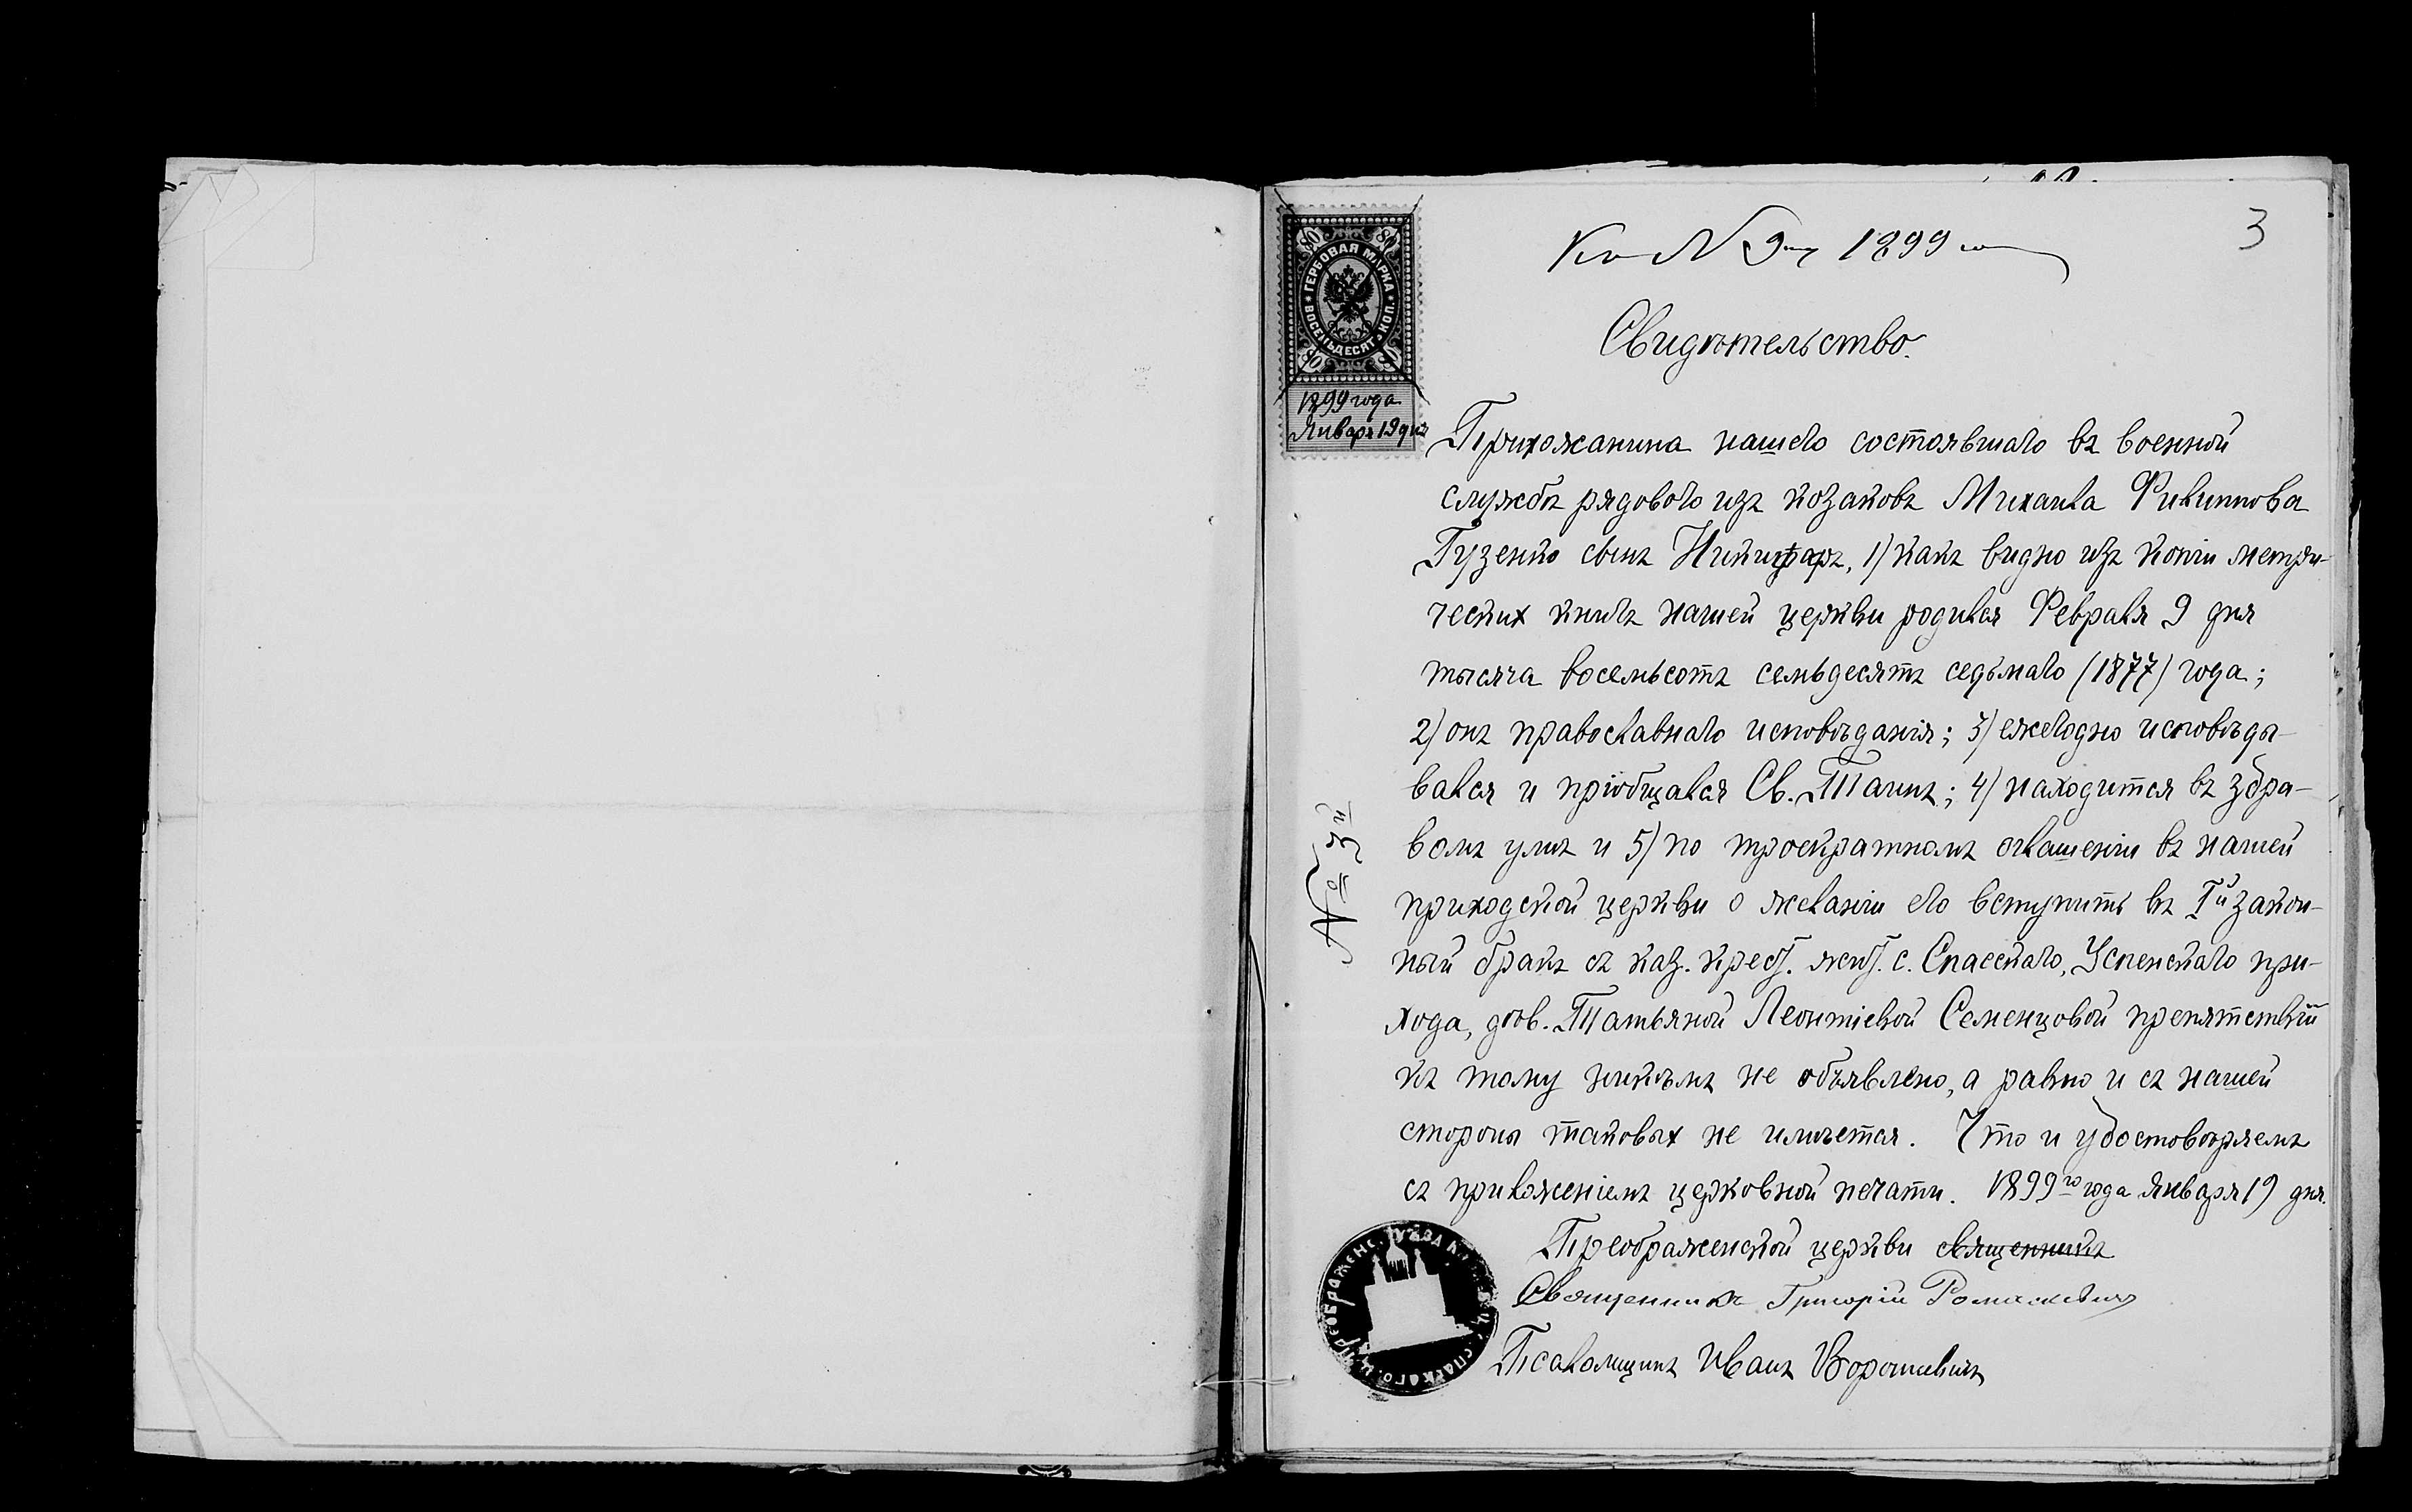 3
Къ N 9му 1899 го
Свидѣтельство.
80 80
ГЕРБОВАЯ МАРКА
ВОСЕМЬДЕСЯТЪ КОП.
80 80
1899 года
Января 19 дня
Прихожанина нашего состоявшаго въ военной
службѣ рядового изъ козаковъ Михаила Филиппова
Гузенко сынъ Никифоръ, 1) какъ видно изъ копіи метри-
ческих книгъ нашей церкви родился Февраля 9 дня
тысяча восемьсотъ семьдесятъ седьмаго (1877) года;
2) онъ православнаго исповѣданія; 3) ежегодно исповѣды-
вался и пріобщался Св. Таинъ; 4) находится въ здра-
вомъ умѣ и 5) по троекратномъ оглашеніи въ нашей
приходской церкви о желаніи его вступить въ Iй закон-
ный бракъ съ каз. крест. жит. с. Спасскаго, Успенскаго при-
хода, дѣв. Татьяной Леонтіевой Семенцовой препятствій
къ тому никѣмъ не объявлено, а равно и съ нашей
стороны таковых не имѣется. Что и удостовѣряемъ
съ приложеніемъ церковной печати. 1899го года Января 19 дня.
№ 3й
Преображенской церкви священникъ
Священникъ Григорій Романкевичъ
Псаломщикъ Иванъ Ворошевичъ